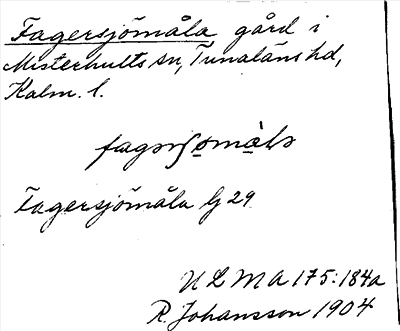 Fagersjömåla gård i
Misterhults sn, Tunaläns hd,
Kalm. l.
Fagersjömåla G 29
ULMA 175:184a
R. Johansson 1904